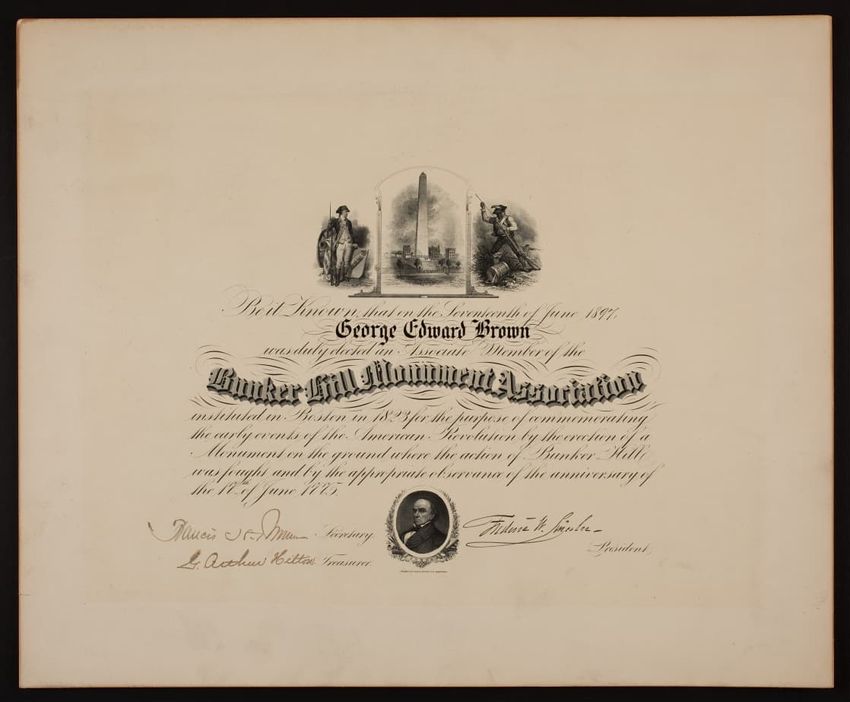 Be it Known, that on the Seventeenth of June 1897,
George Edward Brown
was duly elected an Associate Member of the
Bunker Hill Monument Association
instituted in Boston in 1823 for the purpose of commemorating
the early events of the American Revolution by the erection of a
Monument on the ground where the action of Bunker Hill
was fought, and by the appropriate observance of the anniversary of
the 17th of June 1775.
Francis Secretary.
G. Arthur Hilton Treasurer.
Frederic W. Lincoln
President.